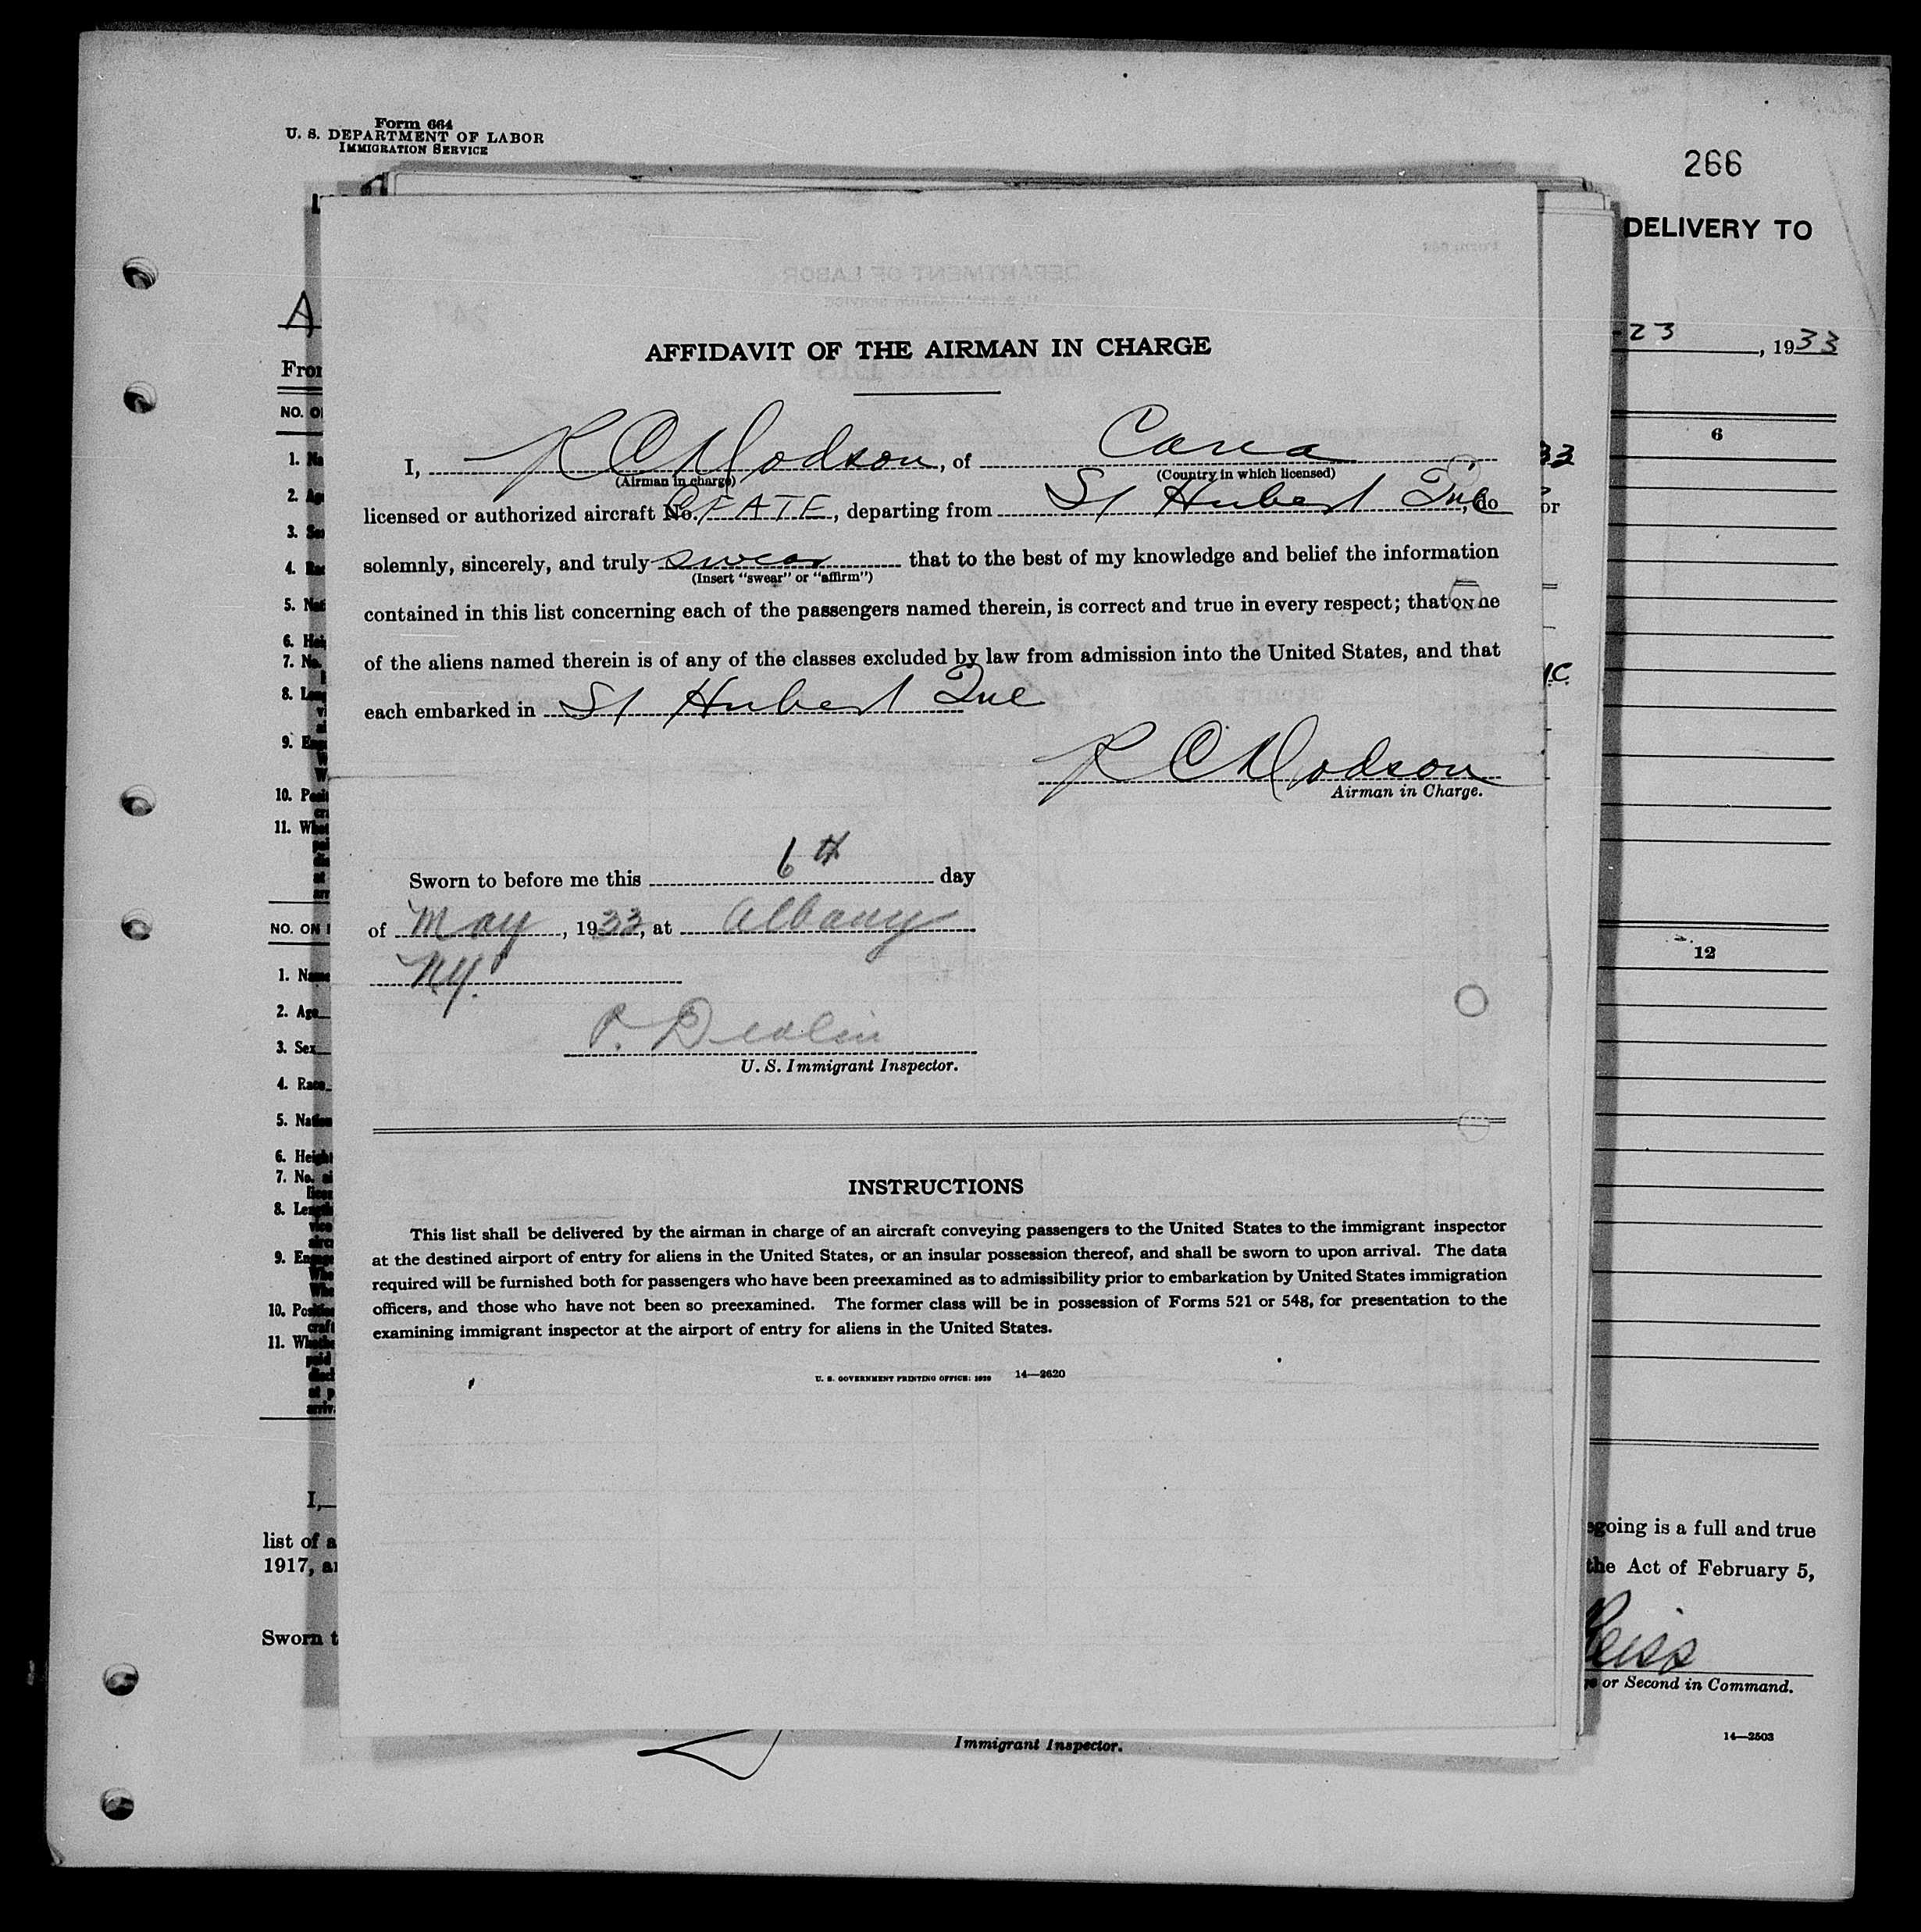 Form 664
U. S. DEPARTMENT OF LABOR
IMMIGRATION SERVICE
266
DELIVERY TO
23, 1933
AFFIDAVIT OF THE AIRMAN IN CHARGE
I, R C Hodson, of Cana
(Airman in charge) (Country in which licensed)
licensed or authorized aircraft No. CFATE, departing from St Hubert Que, do
solemnly, sincerely, and truly swear that to the best of my knowledge and belief the information
(Insert "swear" or "affirm")
contained in this list concerning each of the passengers named therein, is correct and true in every respect; that none
of the aliens named therein is of any of the classes excluded by law from admission into the United States, and that
each embarked in St Hubert Que
R C Hodson
Airman in Charge.
Sworn to before me this 6th day
of May, 1933, at Albany
N.Y.
P. Devlin
U. S. Immigrant Inspector.
INSTRUCTIONS
This list shall be delivered by the airman in charge of an aircraft conveying passengers to the United States to the immigrant inspector
at the destined airport of entry for aliens in the United States, or an insular possession thereof, and shall be sworn to upon arrival. The data
required will be furnished both for passengers who have been preexamined as to admissibility prior to embarkation by United States immigration
officers, and those who have not been so preexamined. The former class will be in possession of Forms 521 or 548, for presentation to the
examining immigrant inspector at the airport of entry for aliens in the United States.
U. S. GOVERNMENT PRINTING OFFICE: 14—2620
6
12
NO. ON
1. Name
2. Age
3. Sex
4. Race
6. Height
7. No.
8. Length
I,
list of a
1917,
Sworn t
going is a full and true
the Act of February 5,
or Second in Command.
14—2503
Immigrant Inspector.